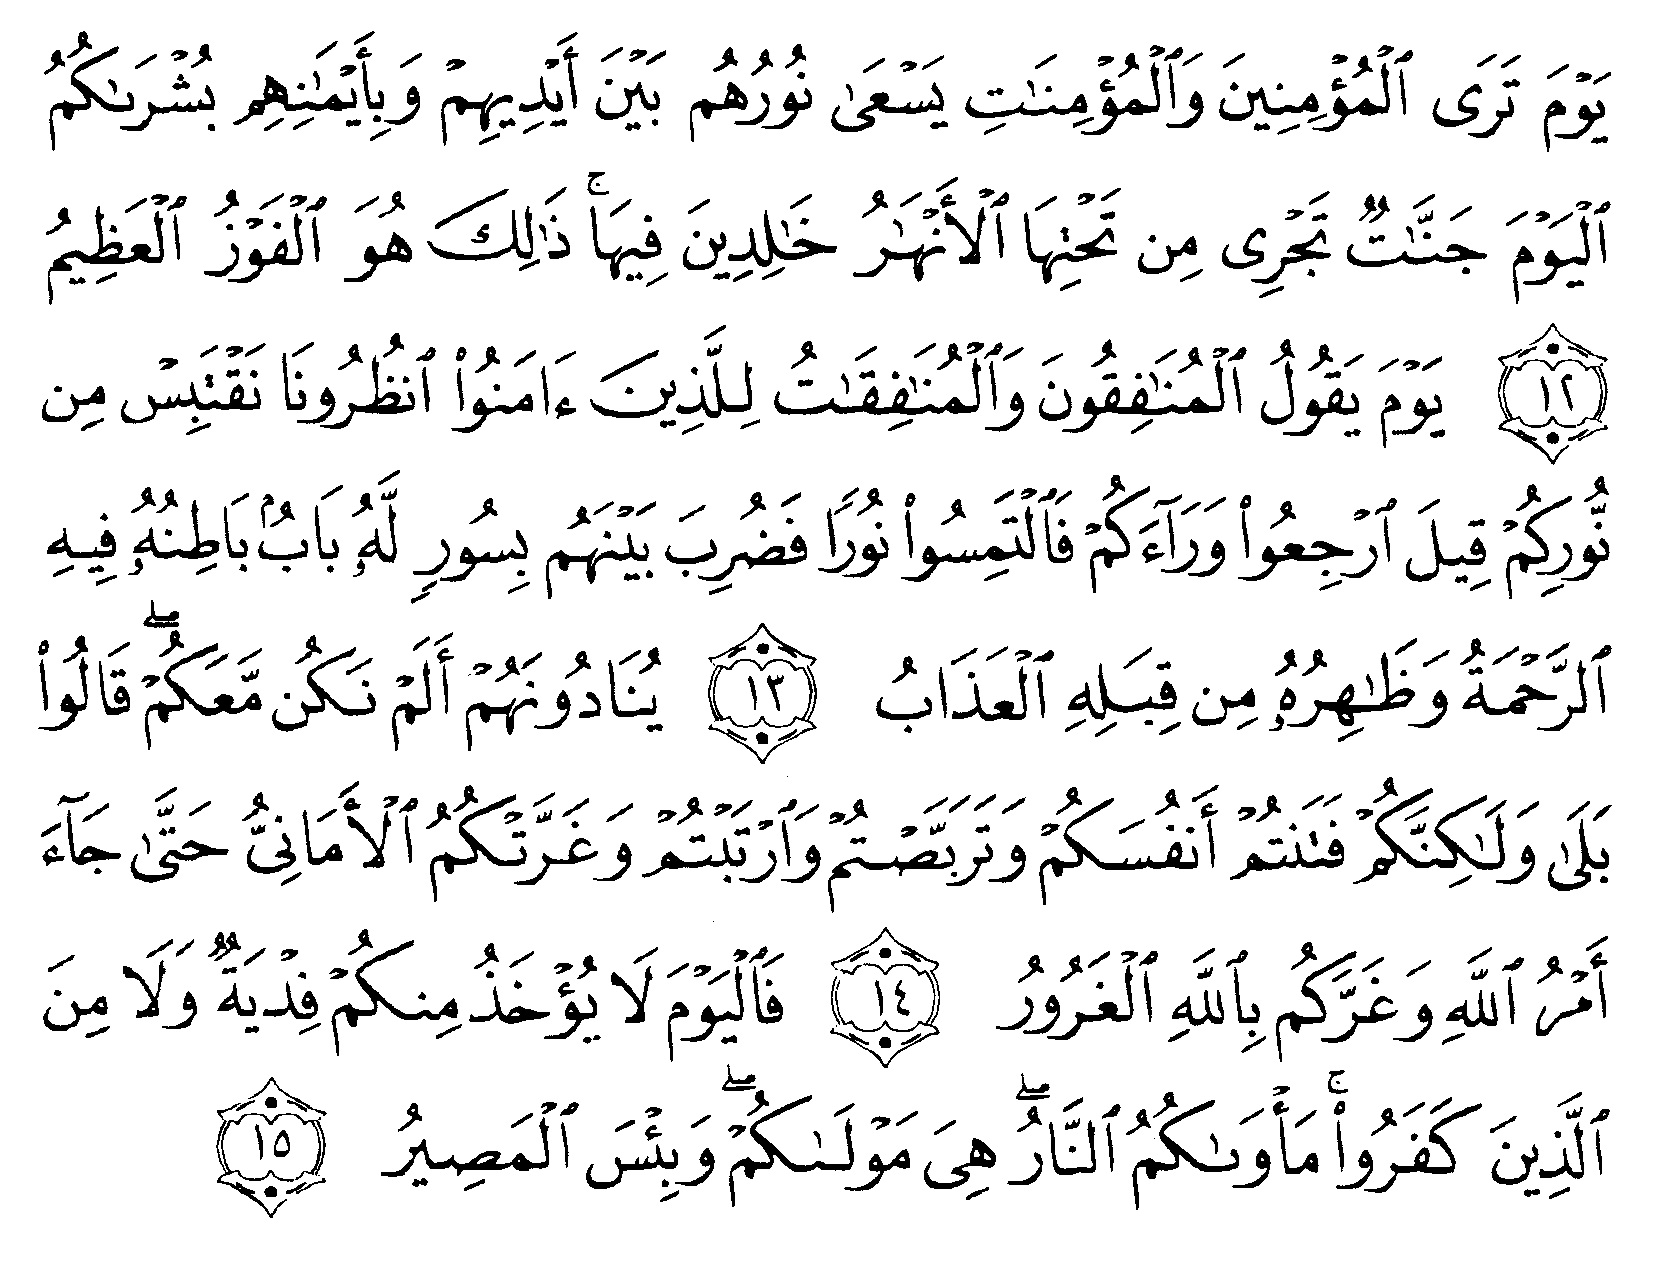 يَوْمَ تَرَى ٱلْمُؤْمِنِينَ وَٱلْمُؤْمِنَـٰتِ يَسْعَىٰ نُورُهُم بَيْنَ أَيْدِيهِمْ وَبِأَيْمَـٰنِهِم بُشْرَىٰكُمُ
ٱلْيَوْمَ جَنَّـٰتٌ تَجْرِى مِن تَحْتِهَا ٱلْأَنْهَـٰرُ خَـٰلِدِينَ فِيهَا ۚ ذَٰلِكَ هُوَ ٱلْفَوْزُ ٱلْعَظِيمُ
١٢ يَوْمَ يَقُولُ ٱلْمُنَـٰفِقُونَ وَٱلْمُنَـٰفِقَـٰتُ لِلَّذِينَ ءَامَنُوا۟ ٱنظُرُونَا نَقْتَبِسْ مِن
نُّورِكُمْ قِيلَ ٱرْجِعُوا۟ وَرَآءَكُمْ فَٱلْتَمِسُوا۟ نُورًا فَضُرِبَ بَيْنَهُم بِسُورٍ لَّهُۥ بَابٌۢ بَاطِنُهُۥ فِيهِ
ٱلرَّحْمَةُ وَظَـٰهِرُهُۥ مِن قِبَلِهِ ٱلْعَذَابُ ١٣ يُنَادُونَهُمْ أَلَمْ نَكُن مَّعَكُمْ ۖ قَالُوا۟
بَلَىٰ وَلَـٰكِنَّكُمْ فَتَنتُمْ أَنفُسَكُمْ وَتَرَبَّصْتُمْ وَٱرْتَبْتُمْ وَغَرَّتْكُمُ ٱلْأَمَانِىُّ حَتَّىٰ جَآءَ
أَمْرُ ٱللَّهِ وَغَرَّكُم بِٱللَّهِ ٱلْغَرُورُ ١٤ فَٱلْيَوْمَ لَا يُؤْخَذُ مِنكُمْ فِدْيَةٌ وَلَا مِنَ
ٱلَّذِينَ كَفَرُوا۟ ۚ مَأْوَىٰكُمُ ٱلنَّارُ ۖ هِىَ مَوْلَىٰكُمْ ۖ وَبِئْسَ ٱلْمَصِيرُ ١٥